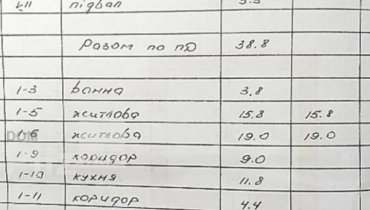 підвал
Разом по пд 38.8
1-3 ванна 3.8
1-5 житлова 15.8 15.8
1-6 житлова 19.0 19.0
1-9 коридор 9.0
1-10 кухня 11.8
1-11 коридор 4.4